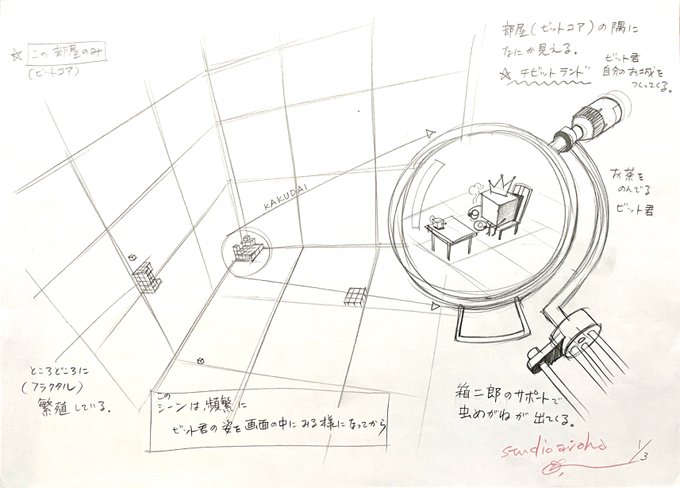 ☆ この部屋のみ
(ビットコア)
部屋(ビットコア)の隅に
なにか見える。
☆ チビットランド
ビット君
自分のお城を
つくってくる。
KAKUDAI
お茶を
のんでる
ビット君
ところどころに
(フラクタル)
繁殖している。
この
シーンは、頻繁に
ビット君の姿を画面の中にみる様になってから
箱二郎のサポートで
虫めがねが出てくる。
studio
1/3